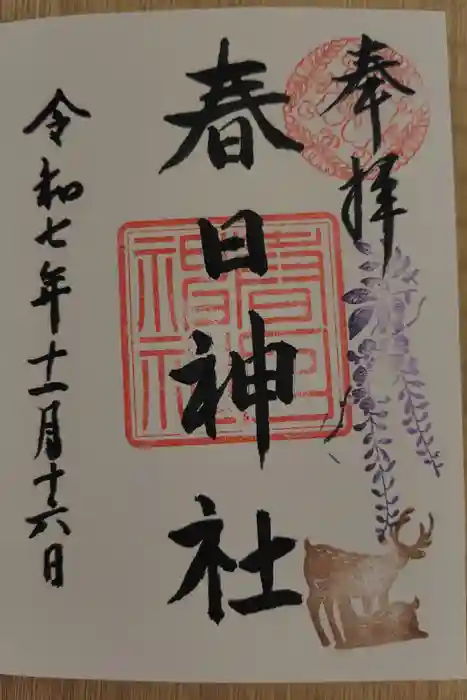 奉拝
春日神社
春日神社
令和七年十一月十六日